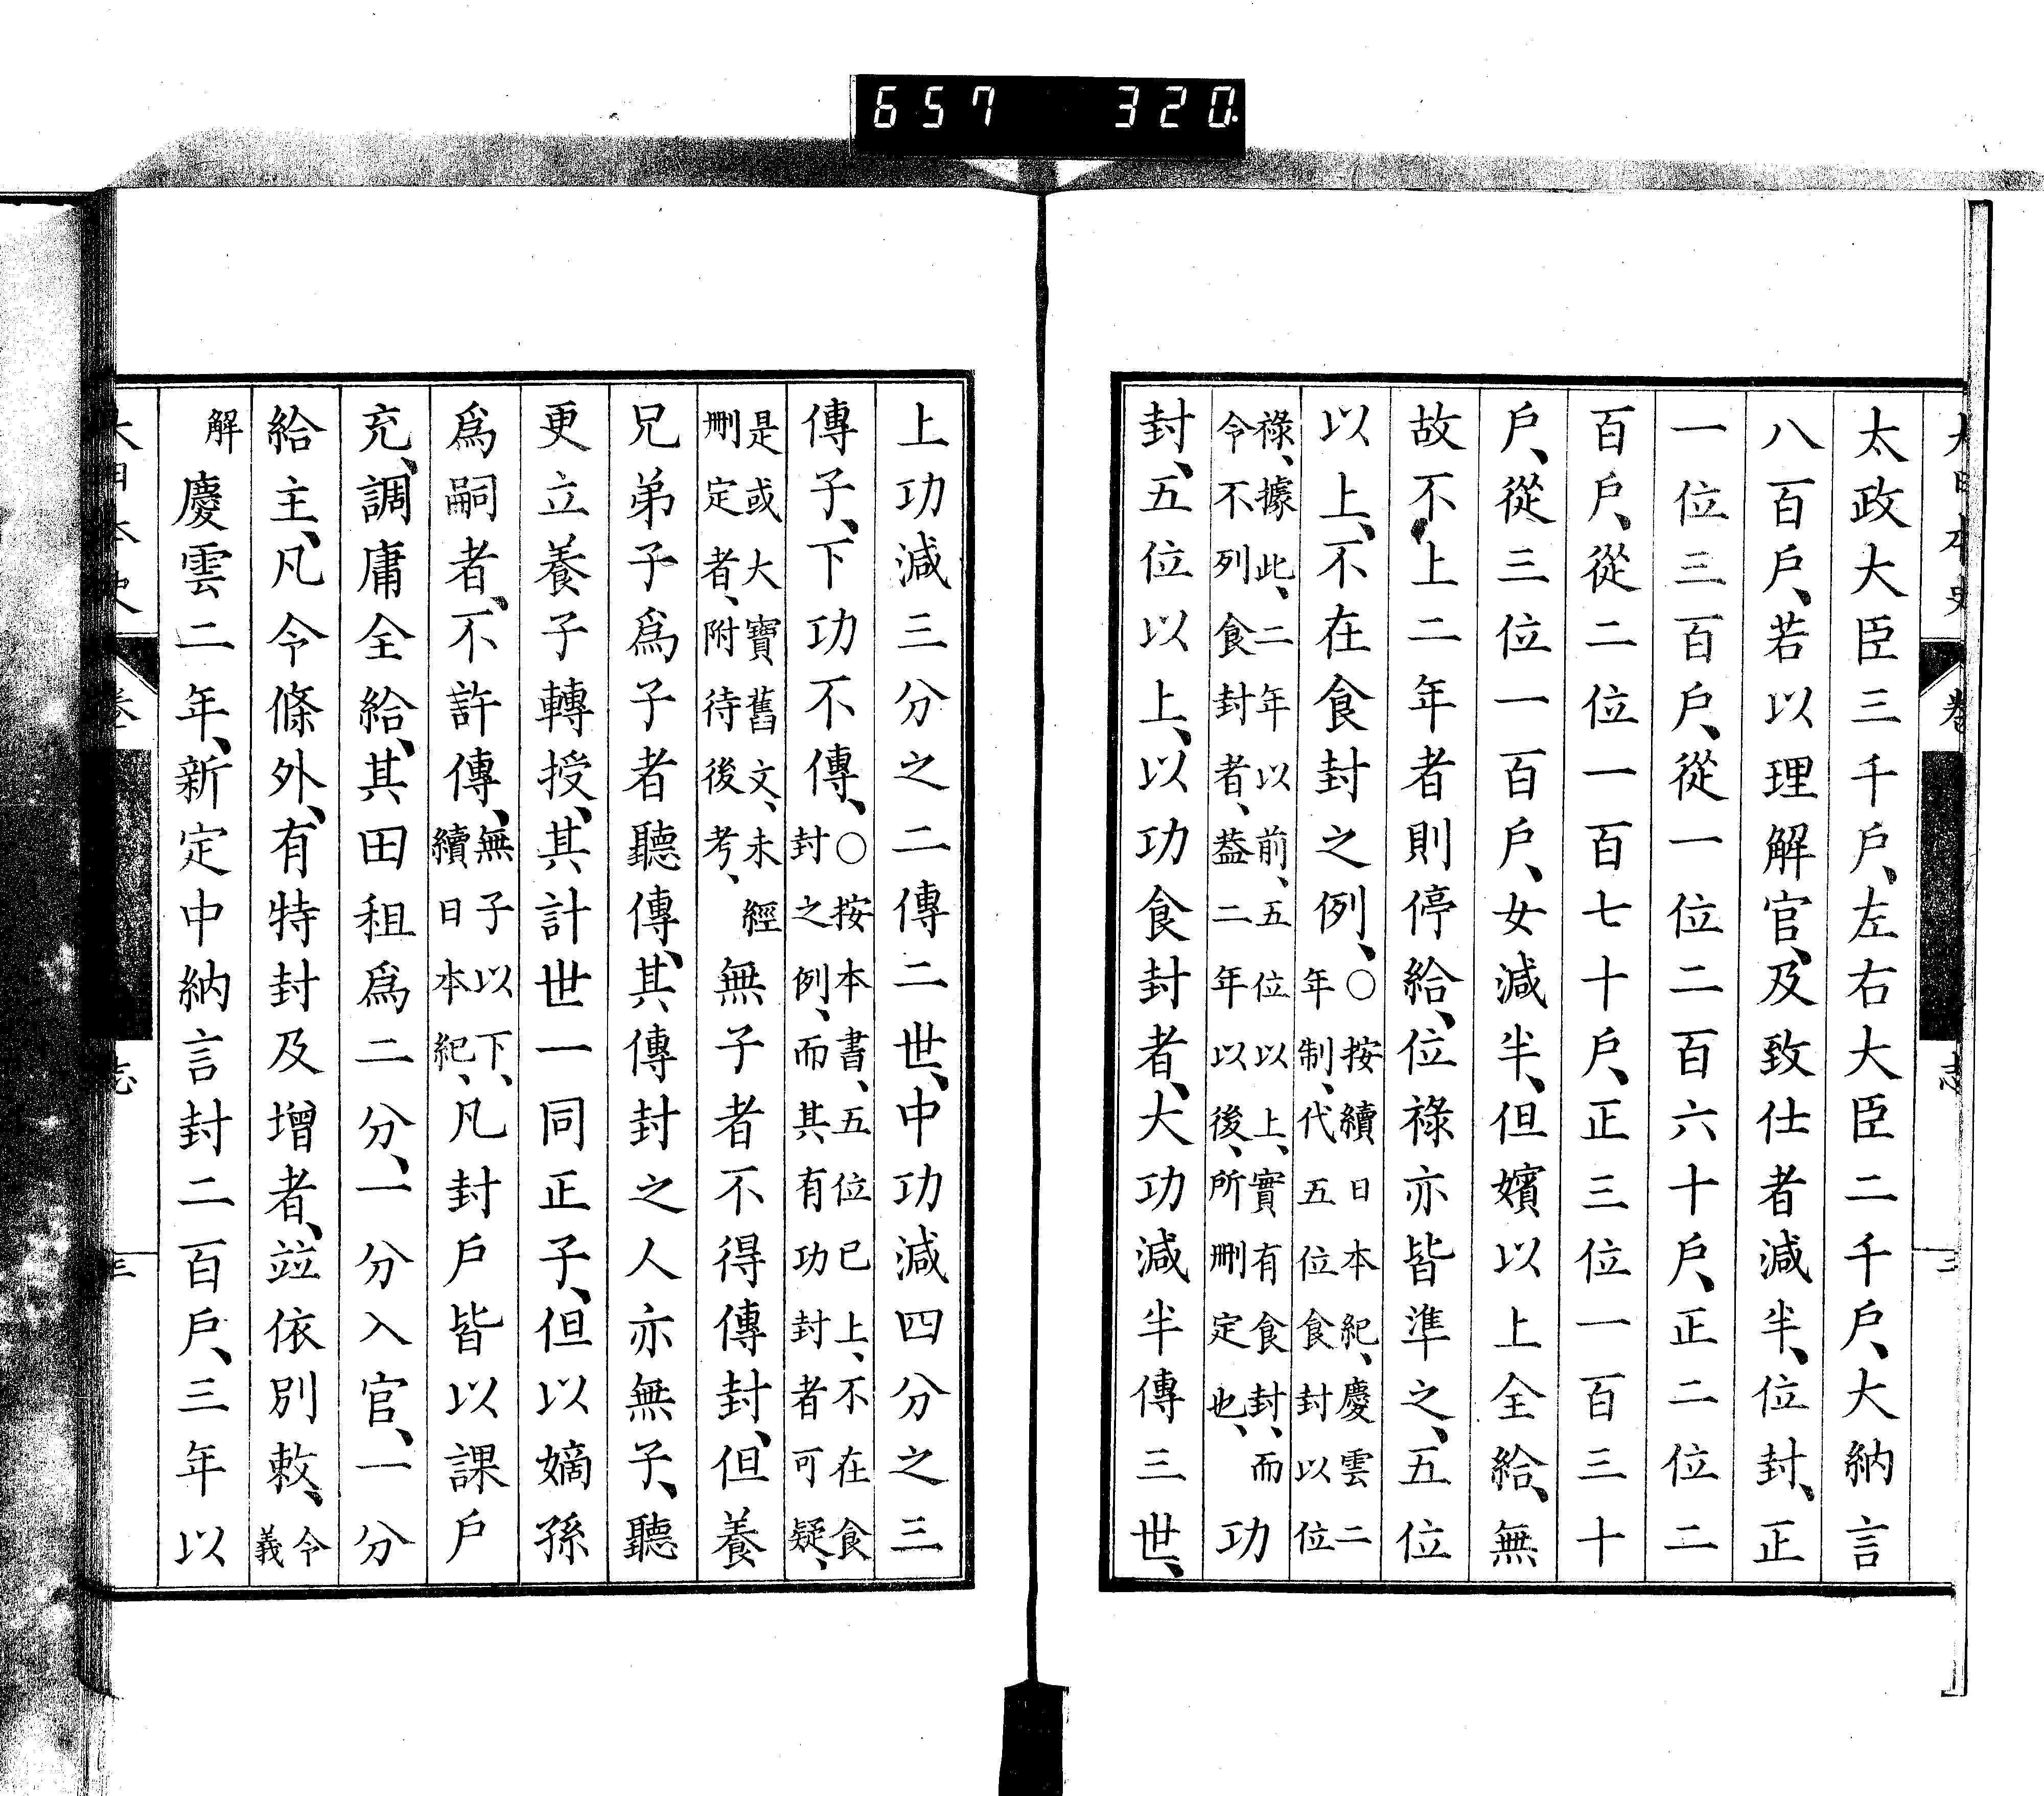 657 320
大日本史 卷 志 三
太政大臣三千戶、左右大臣二千戶、大納言
八百戶、若以理解官、及致仕者減半、位封、正
一位三百戶、從一位二百六十戶、正二位二
百戶、從二位一百七十戶、正三位一百三十
戶、從三位一百戶、女減半、但嬪以上全給、無
故不上二年者則停給、位祿亦皆準之、五位
以上、不在食封之例、○按續日本紀、慶雲二年制、代五位食封以位
祿、據此、二年以前、五位以上、實有食封、而令不列食封者、蓋二年以後、所删定也、功
封、五位以上、以功食封者、大功減半傳三世、
上功減三分之二傳二世、中功減四分之三
傳子、下功不傳、○按本書、五位已上、不在食封之例、而其有功封者可疑、
是或大寶舊文、未經删定者、附待後考、無子者不得傳封、但養
兄弟子爲子者聽傳、其傳封之人亦無子、聽
更立養子轉授、其計世一同正子、但以嫡孫
爲嗣者、不許傳、無子以下、續日本紀、凡封戶皆以課戶
充、調庸全給、其田租爲二分、一分入官、一分
給主、凡令條外、有特封及增者、竝依別敕、令義
解慶雲二年、新定中納言封二百戶、三年以
大日本史 卷 志 三